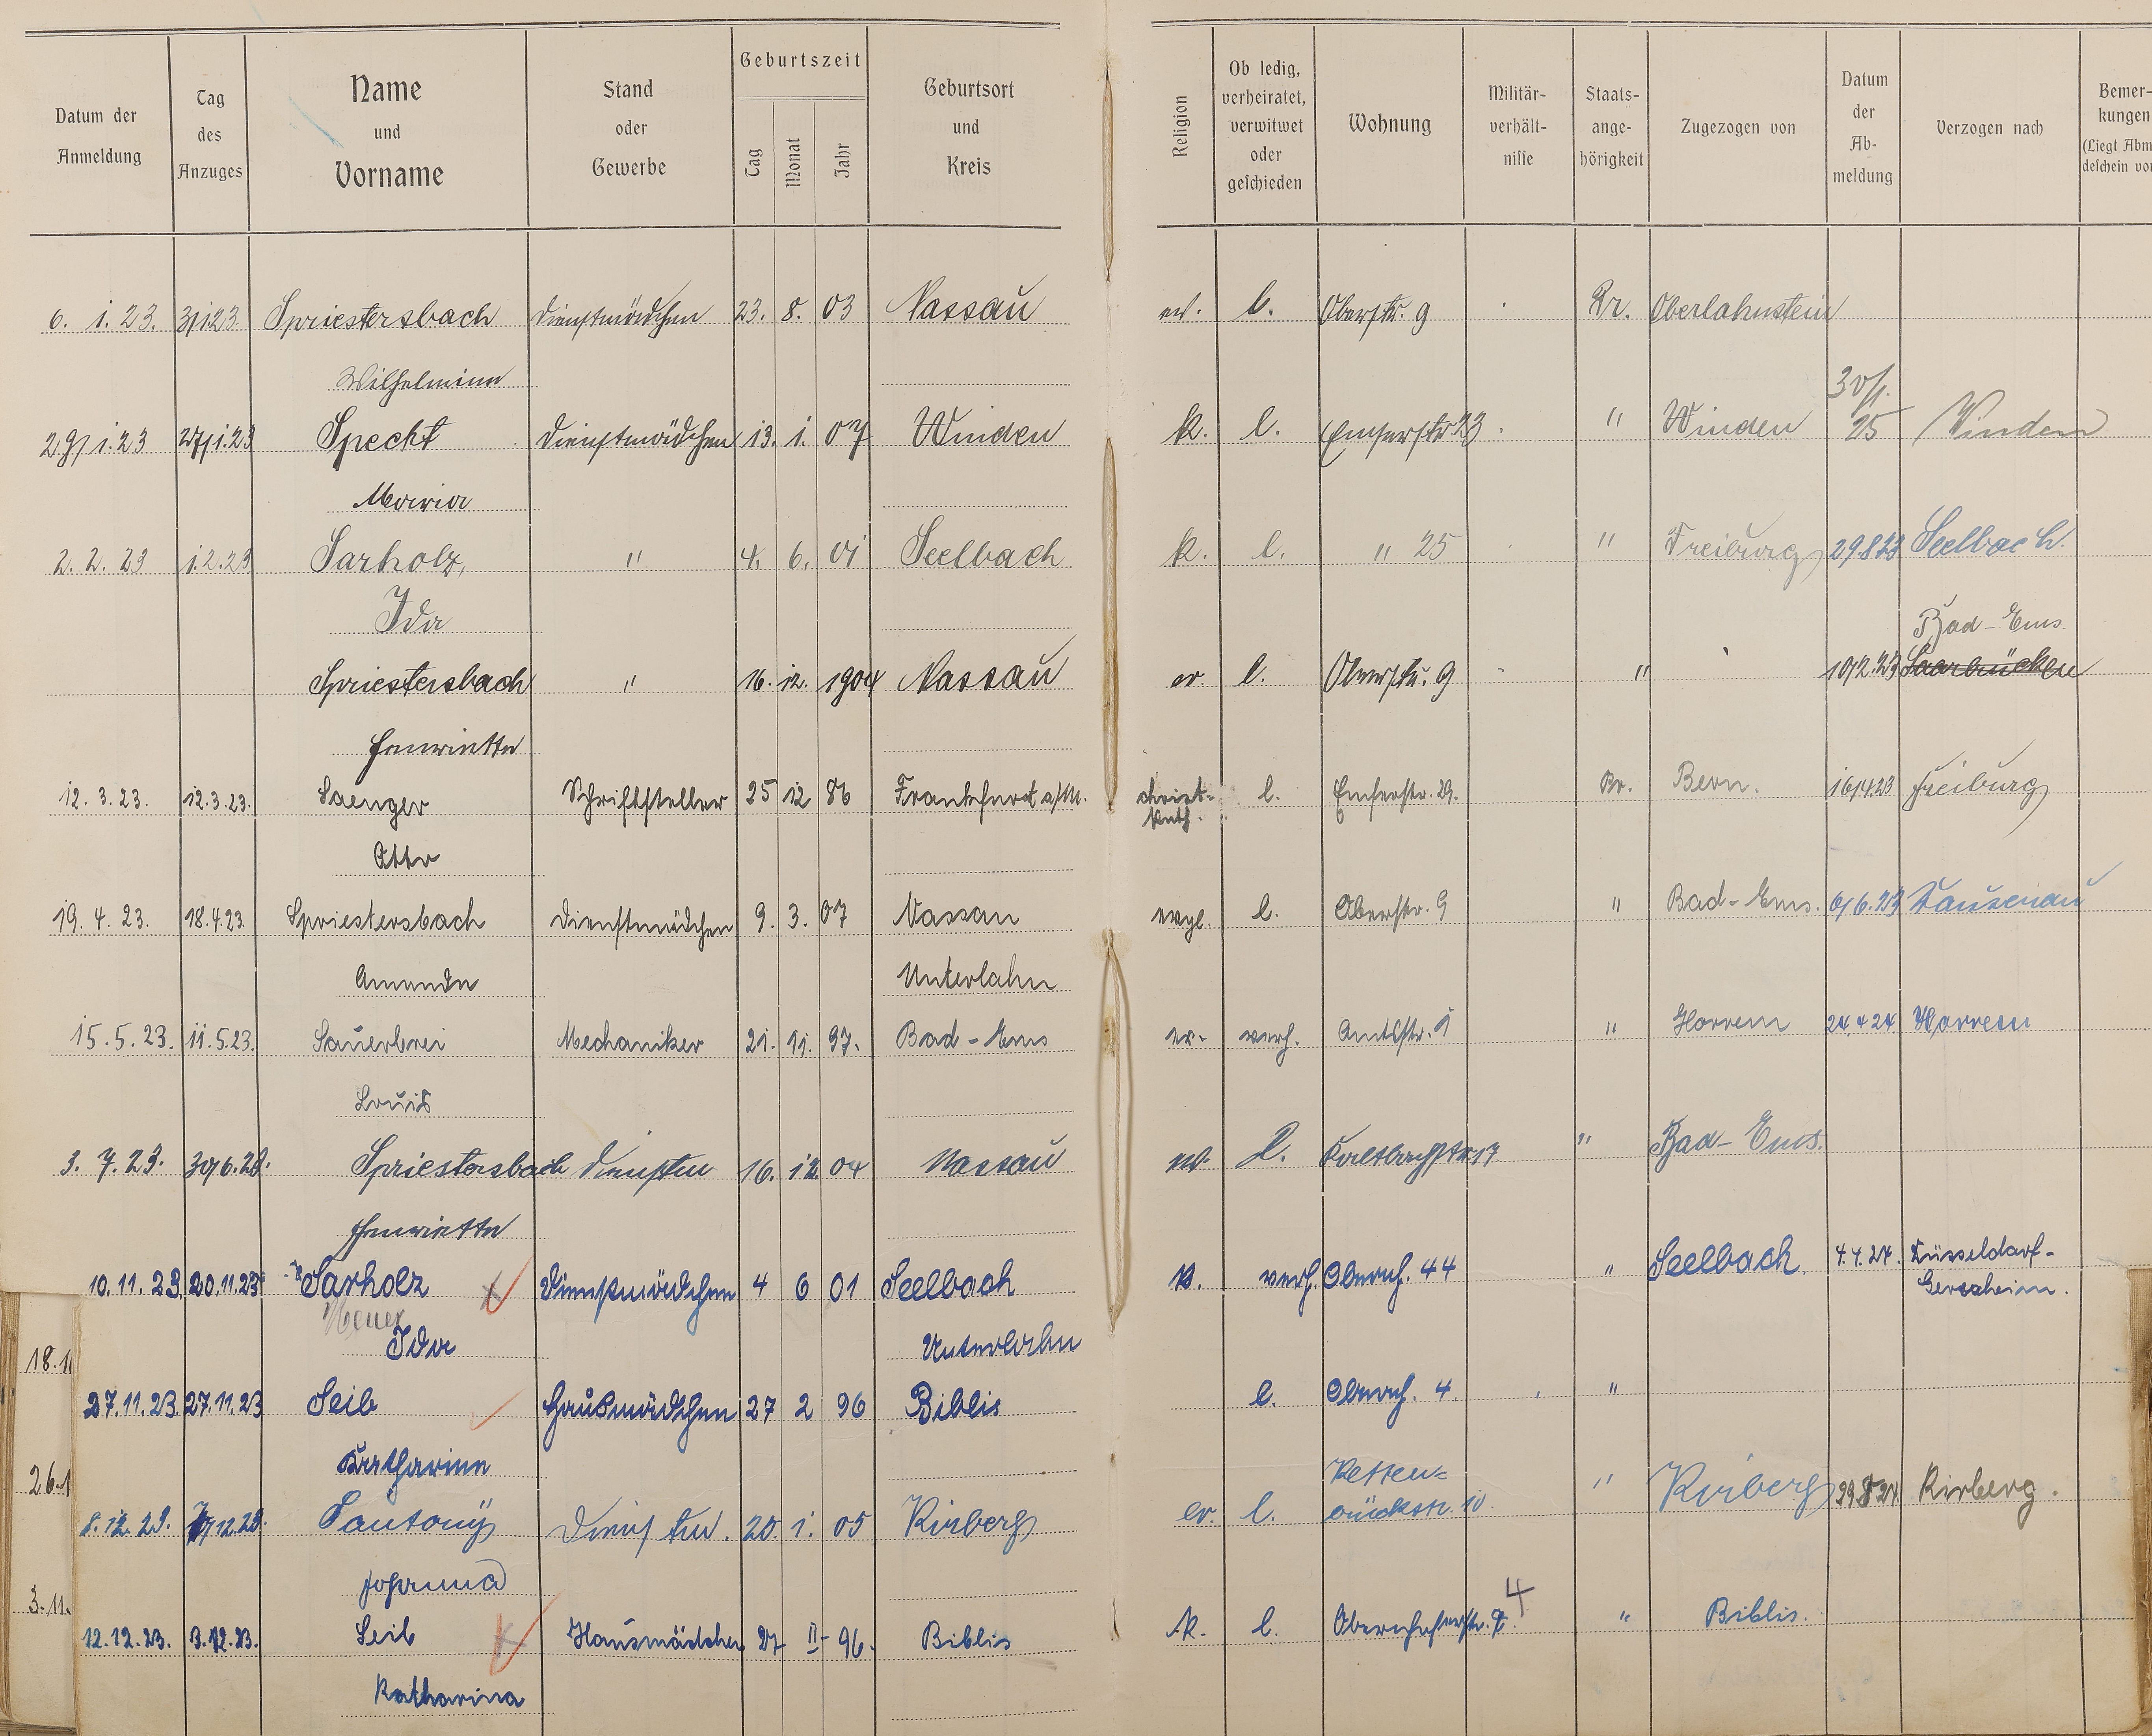 Datum der Anmeldung | Tag des Anzuges | Name und Vorname | Stand oder Gewerbe | Geburtszeit Tag Monat Jahr | Geburtsort und Kreis | Religion | Ob ledig, verheiratet, verwitwet oder geschieden | Wohnung | Militär-verhält-nisse | Staats-ange-hörigkeit | Zugezogen von | Datum der Ab-meldung | Verzogen nach | Bemer-kungen (Liegt Abm deschein vor
6. 1. 23. 3/1 23. Spriestersbach Dienstmädchen 23. 8. 03 Nassau ev. l. Oberstr. 9 Pr. Oberlahnstein
Wilhelmine 30/1.
29/1.23 27/1.23 Specht Dienstmädchen 13. 1. 07 Winden k. l. Emserstr 23 " Winden 25 Winden
Maria
2. 2. 23 1.2.23 Sarholz, " 4. 6. 01 Seelbach k. l. " 25 " Freiburg 29.8.23 Seelbach.
Ida Bad-Ems.
Spriestersbach " 16. 12. 1904 Nassau ev. l. Oberstr. 9 " 10/2.23 Saarbrücken
Henriette
12. 3. 23. 12.3.23. Saenger Schriftsteller 25 12 86 Frankfurt a/M. christ- l. Emserstr. 29. Pr. Bern. 16/4 23 Freiburg
Otto
19. 4. 23. 18.4.23. Spriestersbach Dienstmädchen 9. 3. 07 Nassau evgl. l. Oberstr. 9 " Bad-Ems. 6/6.23 Dausenau
Amanda Unterlahn
15. 5. 23. 11.5.23. Sauerbrei Mechaniker 21. 11. 97. Bad-Ems ev. verh. Amtsstr. " Horrem 24.4 24 Horrem
Louis
3. 7. 23. 30/6.23. Spriestersbach Dienstm 16. 12. 04 Nassau ev. l. Kaltbachstr 17 " Bad-Ems.
Henriette
10. 11. 23 20.11.23 Sarholz Dienstmädchen 4 6 01 Seelbach k. verh. Obernh. 44 " Seelbach. 4.4.24. Düsseldorf-
Gerresheim.
Ida Unterlahn
18.1
27. 11. 23. 27.11.23 Seib Hausmädchen 27 2 96 Biblis l. Obernh. 4. "
Katharina Ketten=
26.1
8. 12. 23. 7/12.23. Santony Dienstm. 20. 1. 05 Kirberg ev. l. brückstr. 10. " Kirberg 29 8 24 Kirberg.
Johanna
3.11. 4
12. 12. 23. 3.12.23. Seib Hausmädchen 27 II 96. Biblis k. l. Obernhoferstr. " Biblis.
Katharina